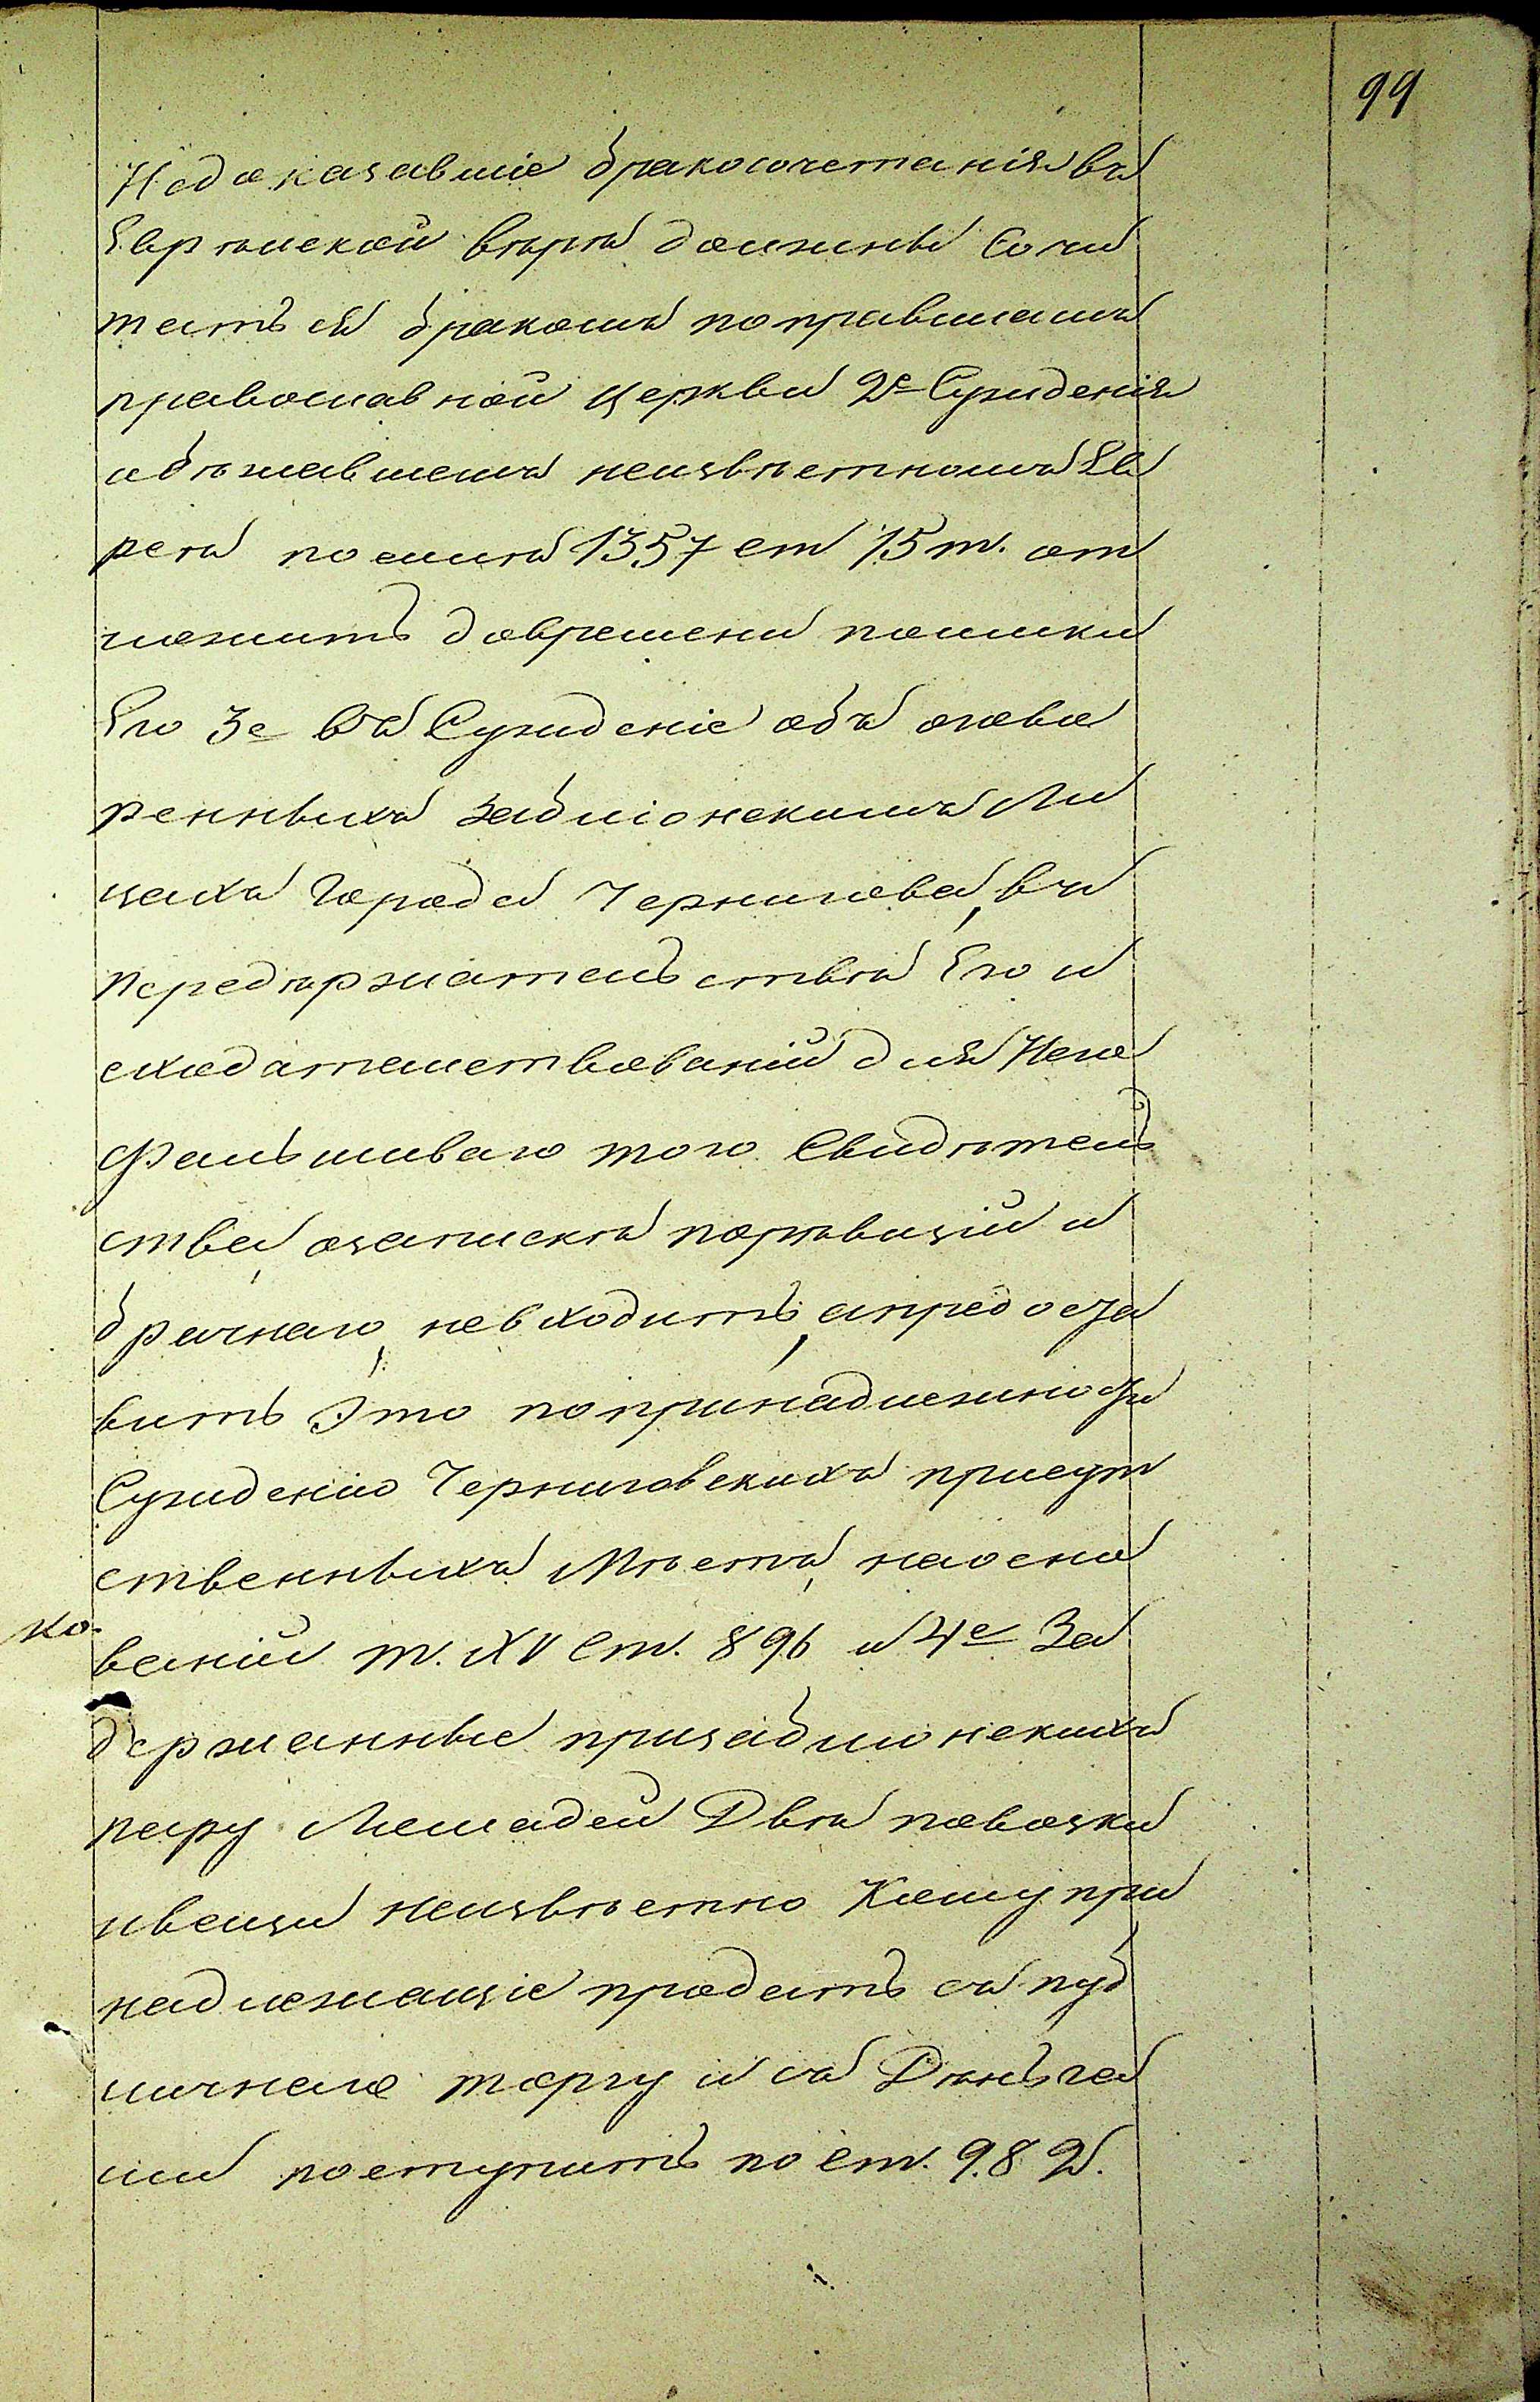 99
Недоказавшіе бракосочетанія въ
Еврейской вѣрѣ должны сочи
таться бракомъ поправиламъ
православной церкви 2е Сужденія
обѣжавшемъ неизвѣстномъ Ев
реѣ посилѣ 1357 ст 15 т. от
ложить довремени поимки
Его 3е въ Сужденіе объ огово
ренныхъ Заблюнскимъ Ли
цахъ города Чернигова, въ
передержательствѣ Его и
сходатействованій для Него
фальшиваго того Свидѣтель
ства, озапискѣ порѣвизіи и
брачнаго, невходить, апредоста
вить Это попринадлежности
Сужденію Черниговскихъ присут
ственныхъ Мѣстъ, наосно
ко
ваніи т. XV ст. 896 и 4е За
держанные призаблюнскихъ
пару Лошадей Двѣ повозки
ивещи неизвѣстно Кому при
надлежащіе продать съ пуб
личнаго торгу и съ Дѣньга
ми поступить по ст. 982.